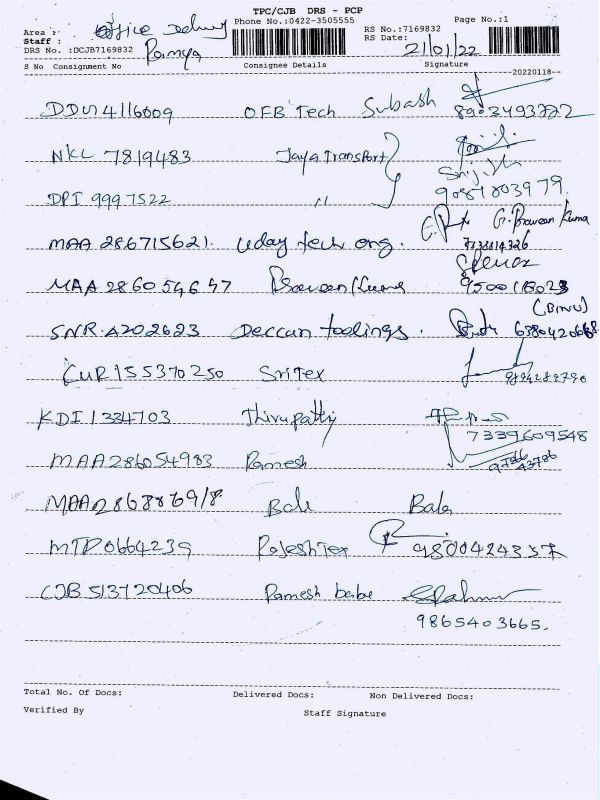 TPC/CJB DRS - PCP
Phone No.:0422-3505555 Page No.:1
Area : office
Staff : Ramya
RS No.:7169832
RS Date: 21/01/22
DRS No. :DCJB7169832
S No Consignment No Consignee Details Signature
20220118
OFB Tech Subash
NKL 7819483 Jaya Transport
DPI 9997522 "
MAA 286715621. Uday tech eng. G. Praveen Kuma
MAA 286054647
(BINU)
SNR A202623 Deccan toolings.
CUR 155370250 SriTex
KDI 1334703 Thirupathy
7339609548
MAA286054983 Ramesh
Bala Bala
MTP0664239 RajeshTex
CJB 513720406 Ramesh babu
9865403665.
Total No. Of Docs: Delivered Docs: Non Delivered Docs:
Verified By Staff Signature